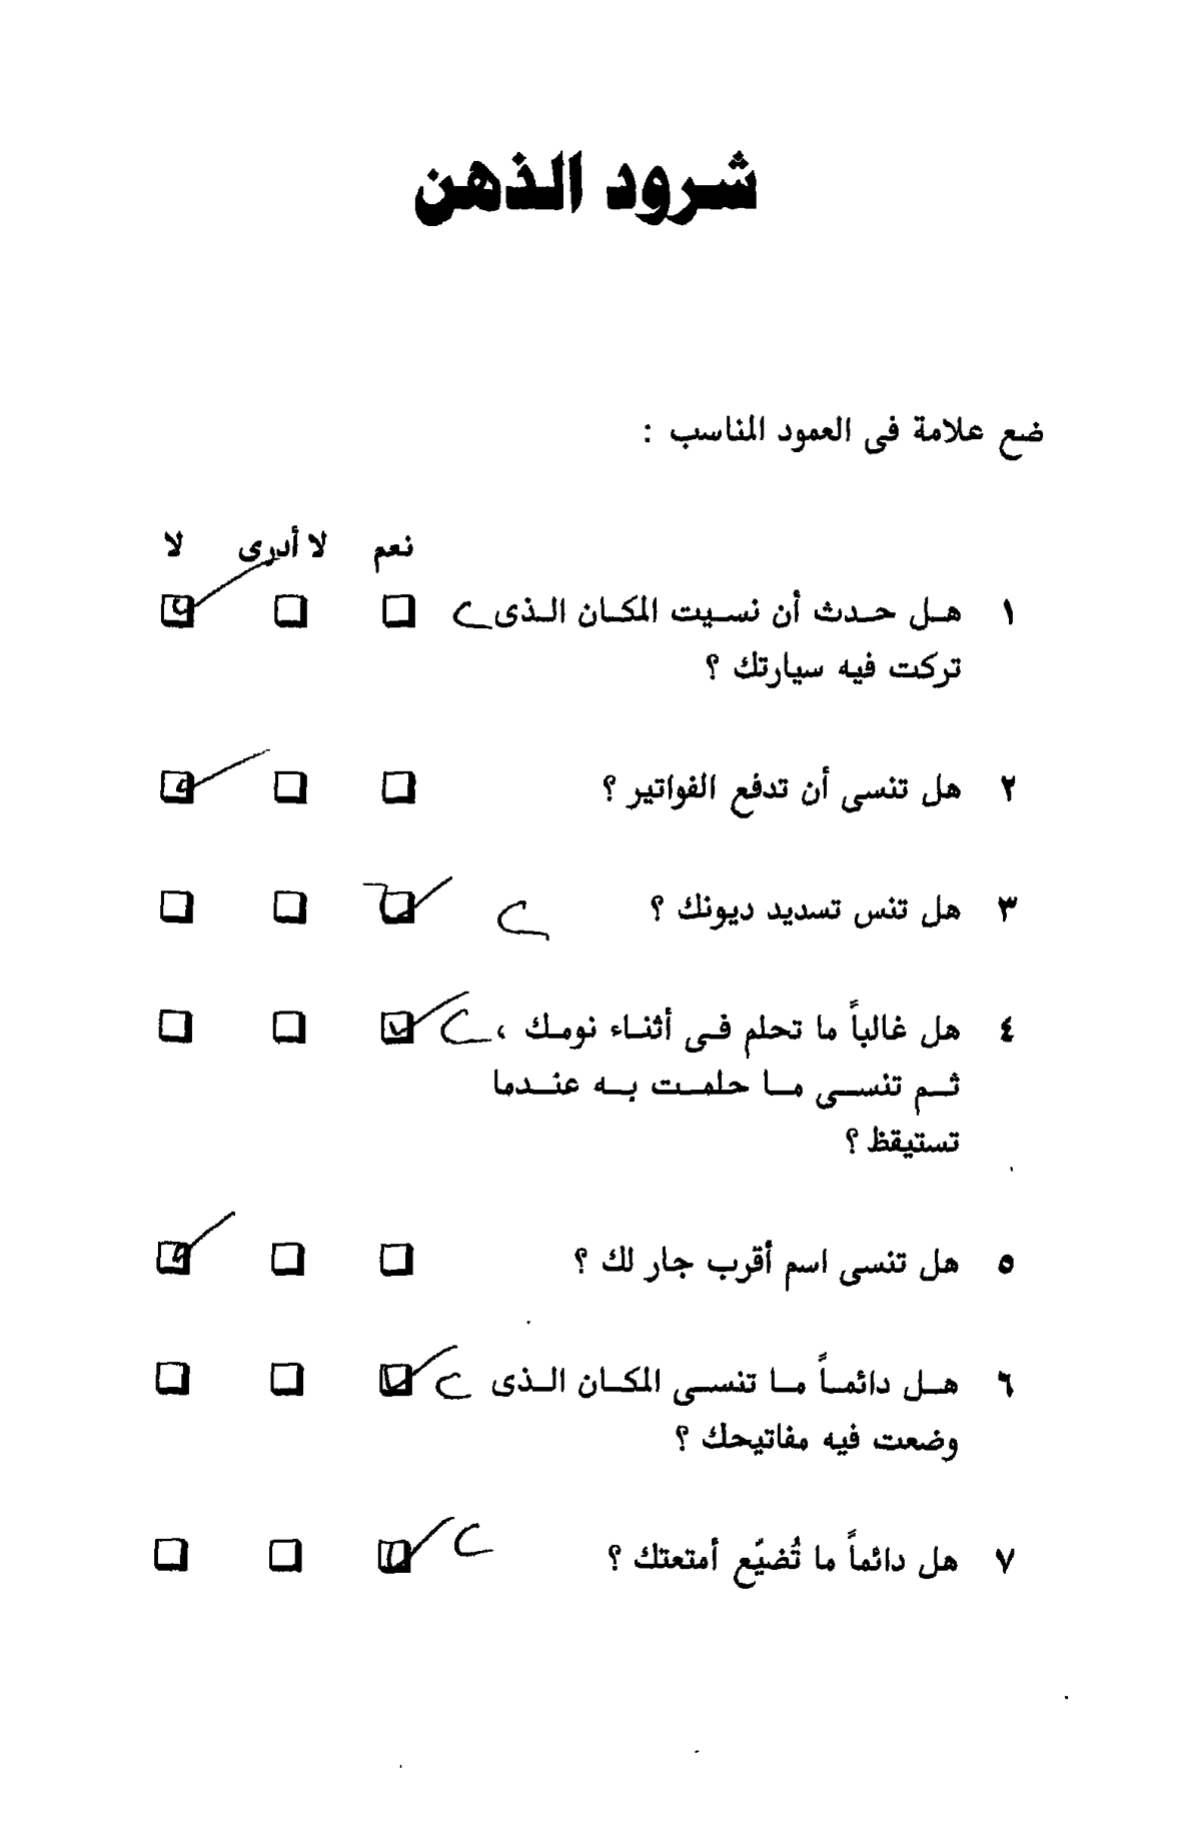 شرود الذهن
ضع علامة فى العمود المناسب :
نعم لا أدرى لا
١ هل حدث أن نسيت المكان الذى
تركت فيه سيارتك ؟
٢ هل تنسى أن تدفع الفواتير ؟
٣ هل تنس تسديد ديونك ؟
٤ هل غالباً ما تحلم فى أثناء نومك ،
ثم تنسى ما حلمت به عندما
تستيقظ ؟
٥ هل تنسى اسم أقرب جار لك ؟
٦ هل دائماً ما تنسى المكان الذى
وضعت فيه مفاتيحك ؟
٧ هل دائماً ما تُضيّع أمتعتك ؟